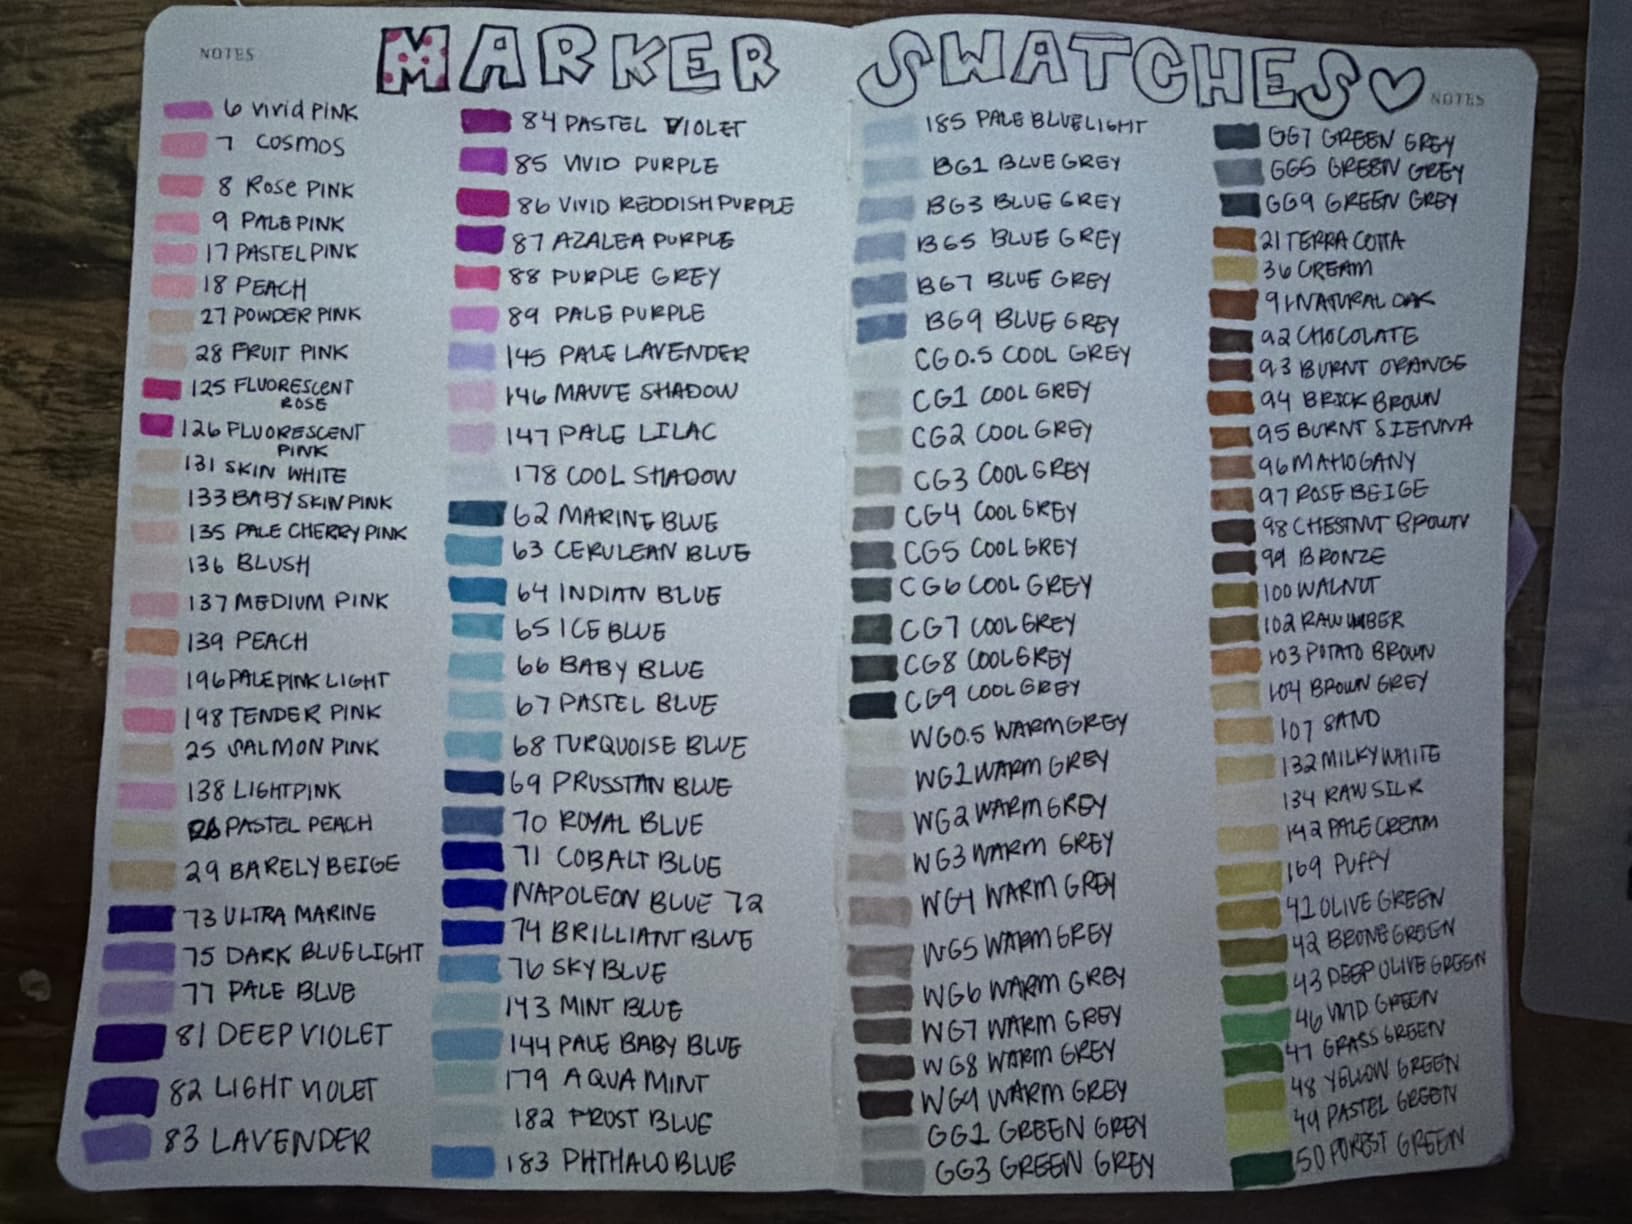 NOTES
MARKER SWATCHES
NOTES
6 VIVID PINK
7 COSMOS
8 ROSE PINK
9 PALE PINK
17 PASTEL PINK
18 PEACH
27 POWDER PINK
28 FRUIT PINK
125 FLUORESCENT
ROSE
126 FLUORESCENT
PINK
131 SKIN WHITE
133 BABY SKIN PINK
135 PALE CHERRY PINK
136 BLUSH
137 MEDIUM PINK
139 PEACH
196 PALE PINK LIGHT
198 TENDER PINK
25 SALMON PINK
138 LIGHT PINK
26 PASTEL PEACH
29 BARELY BEIGE
73 ULTRA MARINE
75 DARK BLUE LIGHT
77 PALE BLUE
81 DEEP VIOLET
82 LIGHT VIOLET
83 LAVENDER
84 PASTEL VIOLET
85 VIVID PURPLE
86 VIVID REDDISH PURPLE
87 AZALEA PURPLE
88 PURPLE GREY
89 PALE PURPLE
145 PALE LAVENDER
146 MAUVE SHADOW
147 PALE LILAC
178 COOL SHADOW
62 MARINE BLUE
63 CERULEAN BLUE
64 INDIAN BLUE
65 ICE BLUE
66 BABY BLUE
67 PASTEL BLUE
68 TURQUOISE BLUE
69 PRUSSTAN BLUE
70 ROYAL BLUE
71 COBALT BLUE
NAPOLEON BLUE 72
74 BRILLIANT BLUE
76 SKY BLUE
143 MINT BLUE
144 PALE BABY BLUE
179 AQUA MINT
182 FROST BLUE
183 PHTHALO BLUE
185 PALE BLUE LIGHT
BG1 BLUE GREY
BG3 BLUE GREY
BG5 BLUE GREY
BG7 BLUE GREY
BG9 BLUE GREY
CG0.5 COOL GREY
CG1 COOL GREY
CG2 COOL GREY
CG3 COOL GREY
CG4 COOL GREY
CG5 COOL GREY
CG6 COOL GREY
CG7 COOL GREY
CG8 COOL GREY
CG9 COOL GREY
WG0.5 WARM GREY
WG1 WARM GREY
WG2 WARM GREY
WG3 WARM GREY
WG4 WARM GREY
WG5 WARM GREY
WG6 WARM GREY
WG7 WARM GREY
WG8 WARM GREY
WG9 WARM GREY
GG1 GREEN GREY
GG3 GREEN GREY
GG7 GREEN GREY
GG5 GREEN GREY
GG9 GREEN GREY
21 TERRA COTTA
36 CREAM
91 NATURAL OAK
92 CHOCOLATE
93 BURNT ORANGE
94 BRICK BROWN
95 BURNT SIENNA
96 MAHOGANY
97 ROSE BEIGE
98 CHESTNUT BROWN
99 BRONZE
100 WALNUT
102 RAW UMBER
103 POTATO BROWN
104 BROWN GREY
107 SAND
132 MILKY WHITE
134 RAW SILK
142 PALE CREAM
169 PUFFY
41 OLIVE GREEN
42 BRONE GREEN
43 DEEP OLIVE GREEN
46 VIVID GREEN
47 GRASS GREEN
48 YELLOW GREEN
49 PASTEL GREEN
50 FOREST GREEN